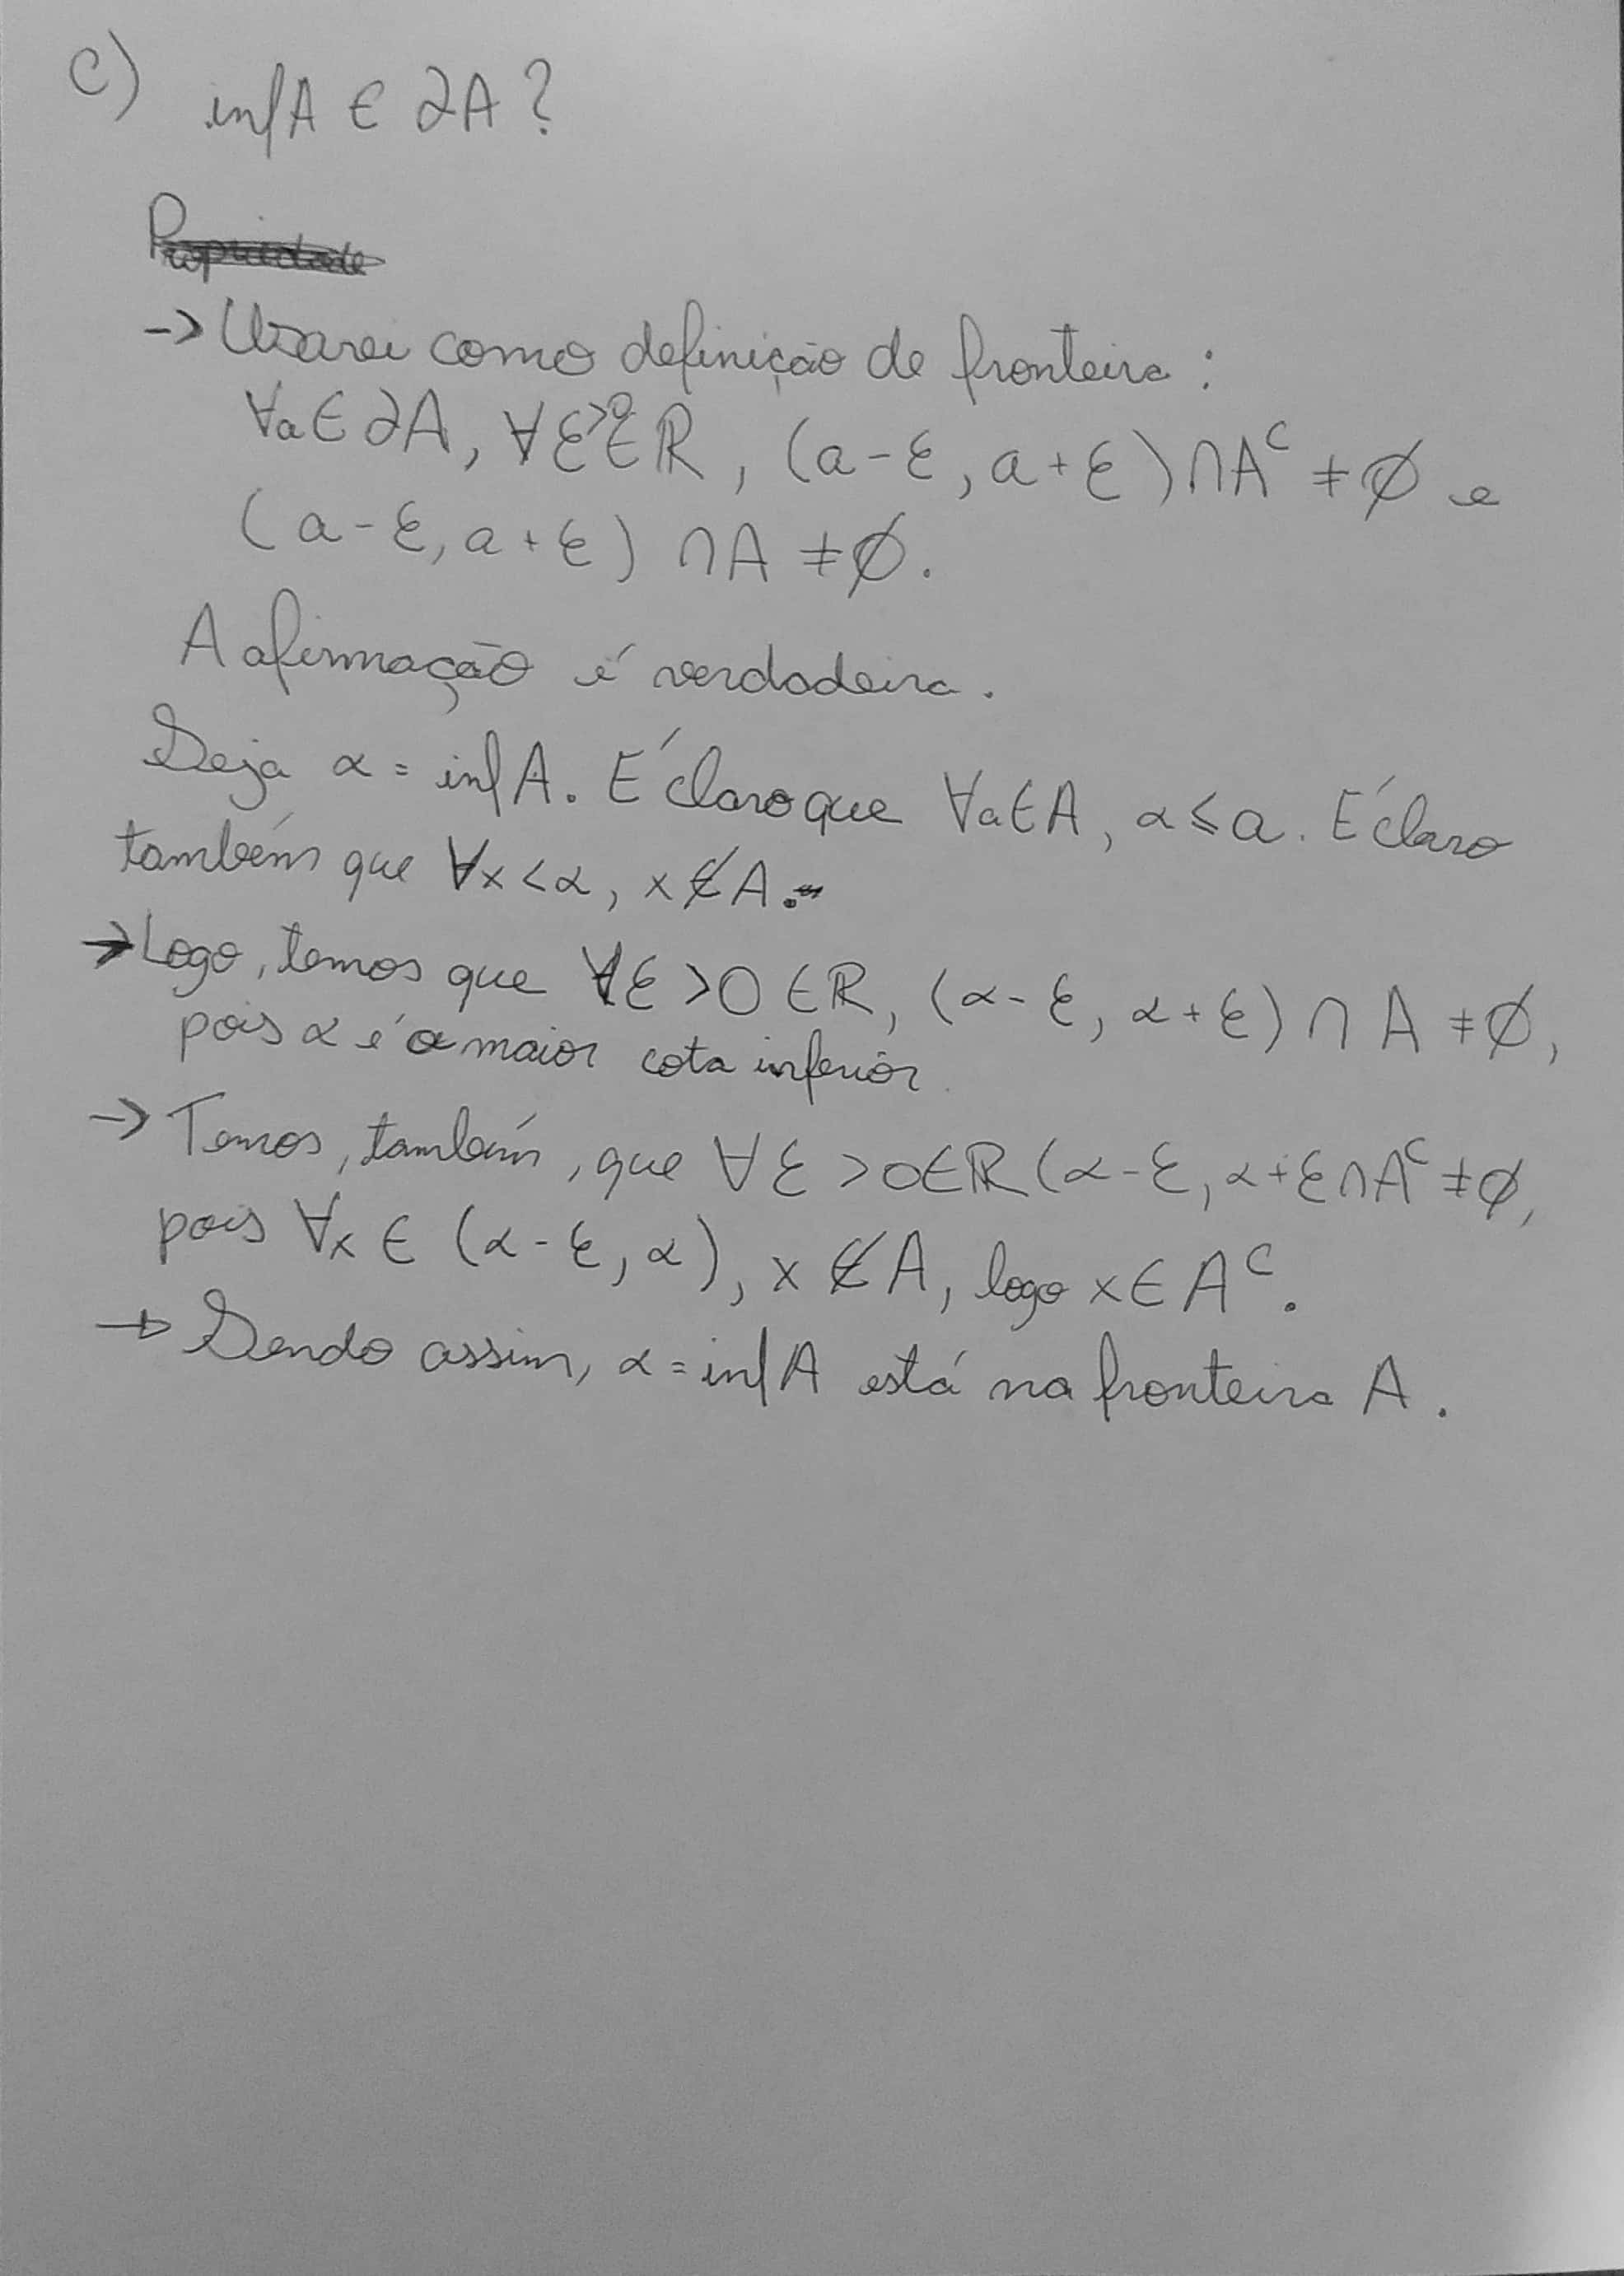 c) inf A ∈ ∂A?
Propriedade
-> Usarei como definição de fronteira:
∀a ∈ ∂A, ∀ε>0 ∈ ℝ, (a-ε, a+ε) ∩ A^c ≠ ∅ e
(a-ε, a+ε) ∩ A ≠ ∅.
A afirmação é verdadeira.
Seja α = inf A. É claro que ∀a ∈ A, α ≤ a. É claro
também que ∀x < α, x ∉ A.
-> Logo, temos que ∀ε > 0 ∈ ℝ, (α-ε, α+ε) ∩ A ≠ ∅,
pois α é a maior cota inferior.
-> Temos, também, que ∀ε > 0 ∈ ℝ (α-ε, α+ε ∩ A^c ≠ ∅,
pois ∀x ∈ (α-ε, α), x ∉ A, logo x ∈ A^c.
-> Sendo assim, α = inf A está na fronteira A.